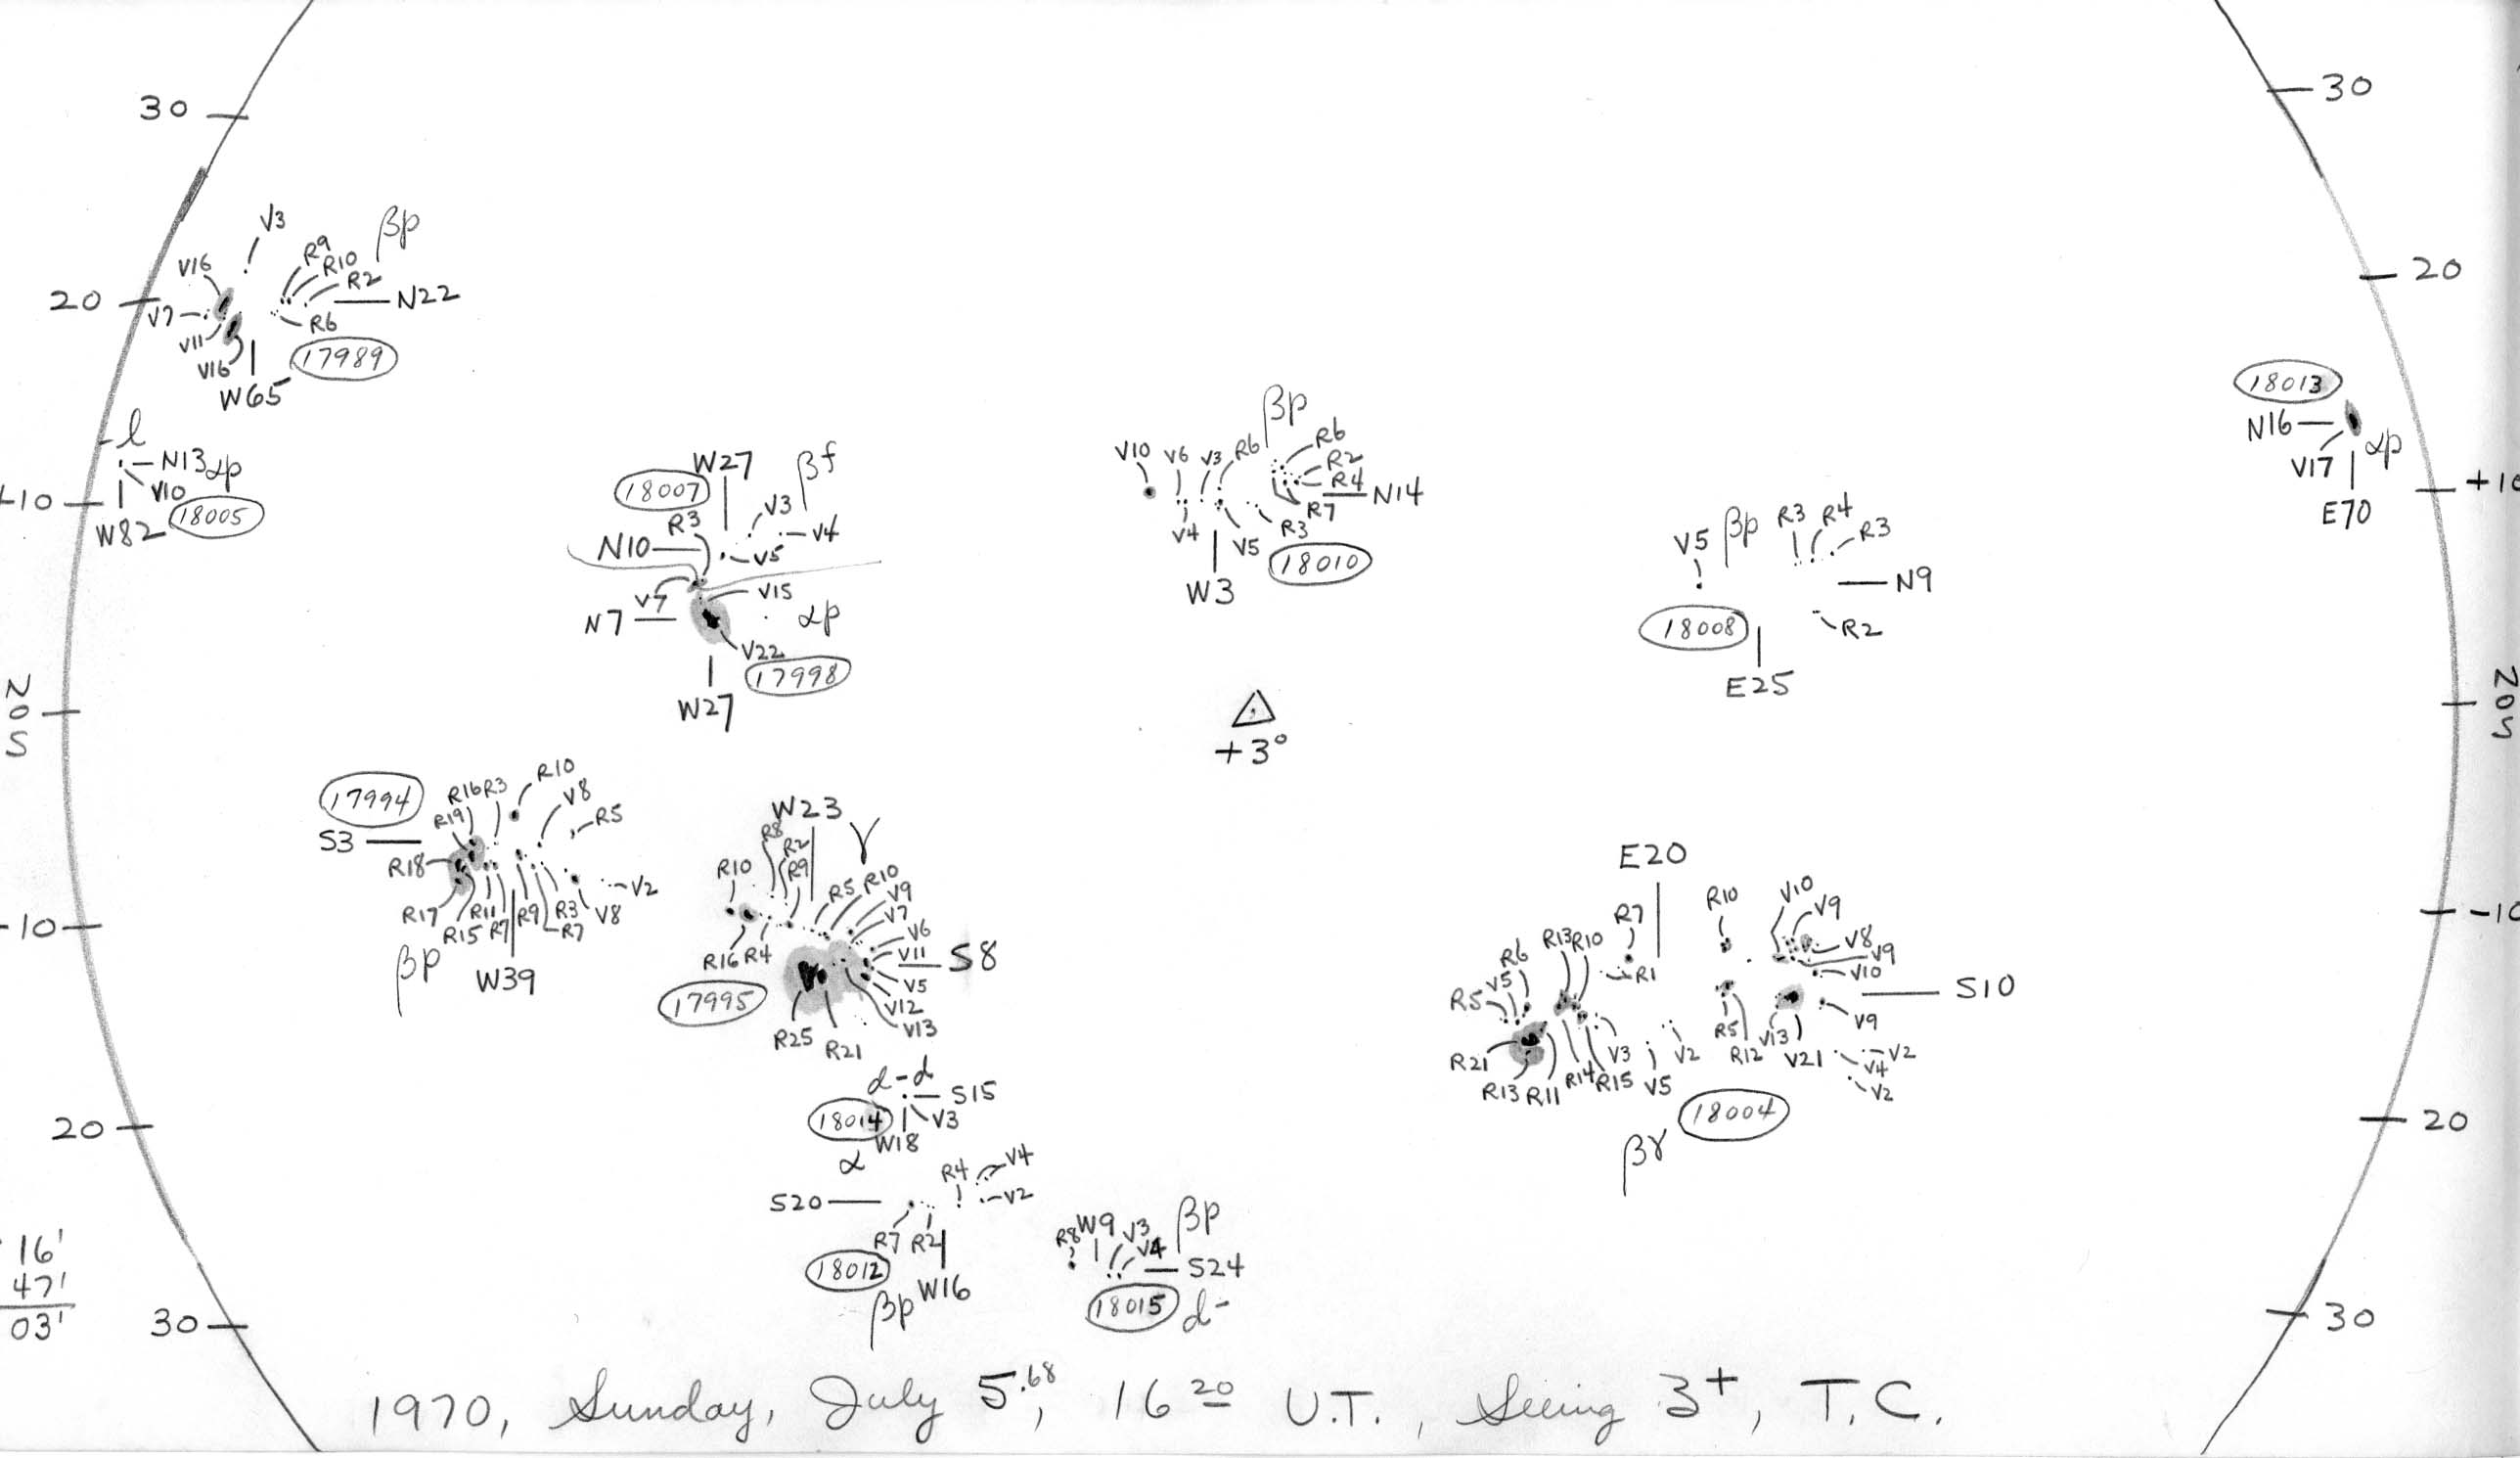 30
30
20
V3
βp
R9
R10
R2
V16
N22
V7
R6
V11
V16
17989
W65
20
18013
N16
αp
V17
E70
l
N13 αp
V10
+10
18005
W82
+10
W27
βf
18007
V3
R3
V4
N10
V5
V7
V15
N7
αp
V22
17998
W27
βp
V10
V6
V3
R6
R6
R2
R4
N14
R7
V4
V5
R3
18010
W3
V5
βp
R3
R4
R3
N9
18008
R2
E25
N
0
S
+3°
N
0
S
17994
R10
R16
R3
V8
R19
R5
S3
R18
V2
R17
R11
R9
R3
V8
R15
R7
R7
βp
W39
-10
W23
γ
R8
R2
R10
R9
R5
R10
V9
V7
V6
V11
S8
R16
R4
V5
V12
17995
V13
R25
R21
E20
R10
V10
V9
R7
V8
R13
R10
V9
R6
R1
V10
V5
R5
S10
V9
R5
V13
R12
V21
V3
V2
V2
R21
V4
R14
R15
V5
V2
R13
R11
18004
βγ
-10
d-d
S15
18014
V3
W18
α
20
20
R4
V4
S20
V2
R7
R2
18012
βp
W16
W9
βp
R8
V3
V4
S24
18015
d-
16'
47'
03'
30
30
1970, Sunday, July 5.68, 16 20 U.T., Seeing 3+, T.C.